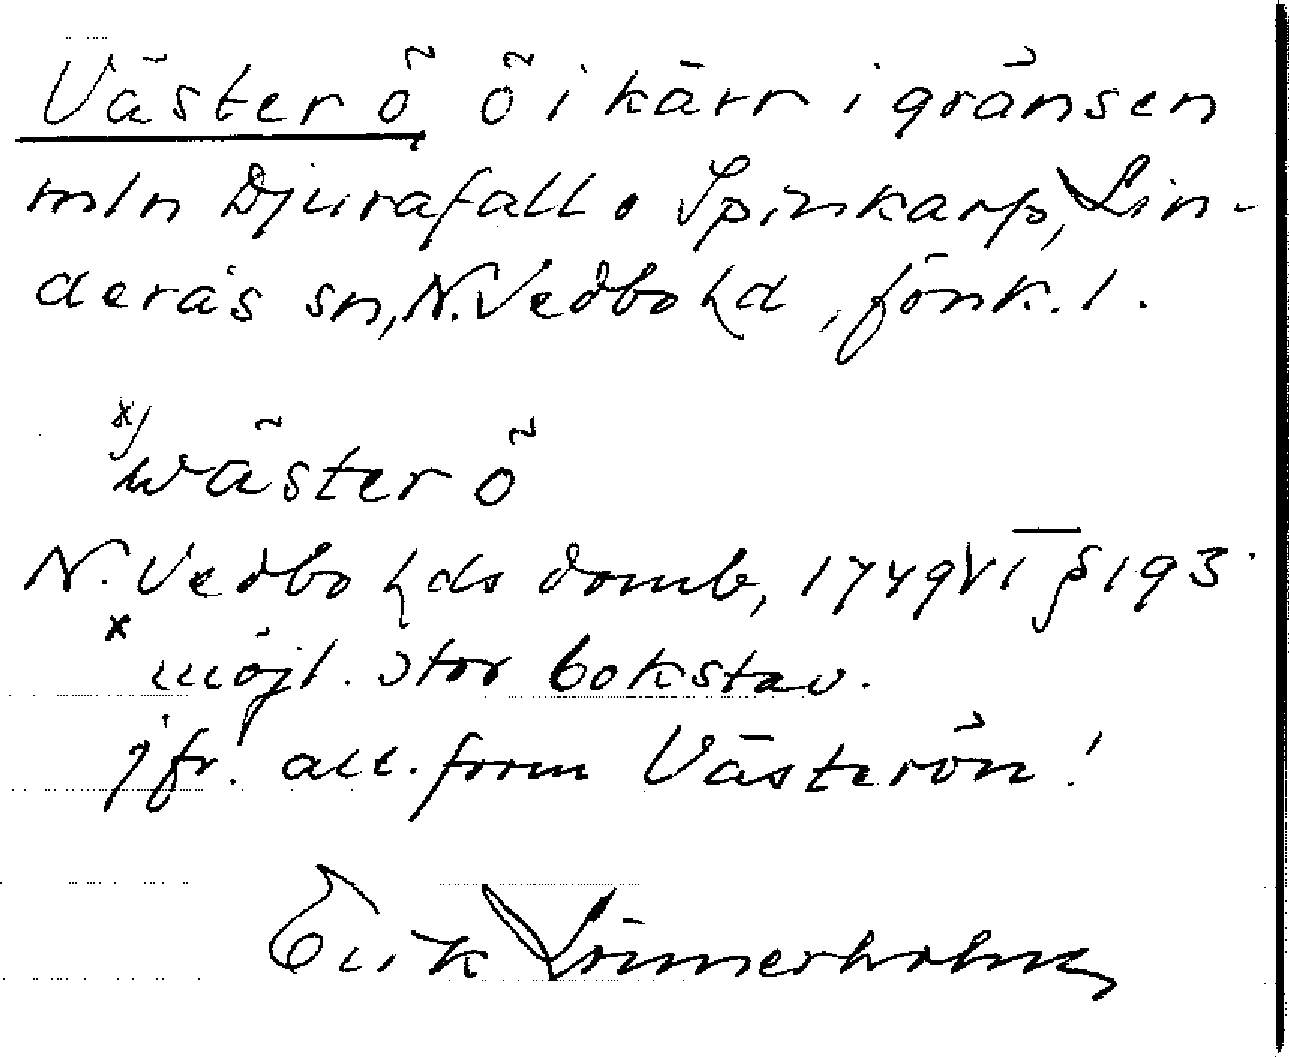 Väster ö ö i kärr i gränsen
mln Djurafall o Spinkarp, Lin-
derås sn, N. Vedbo hd, Jönk. l.
x) wäster ö
N. Vedbo hds domb, 1749 VI § 193
x möjl. stor bokstav.
jfr. all. form Västerön!
Erik Lönnerholm